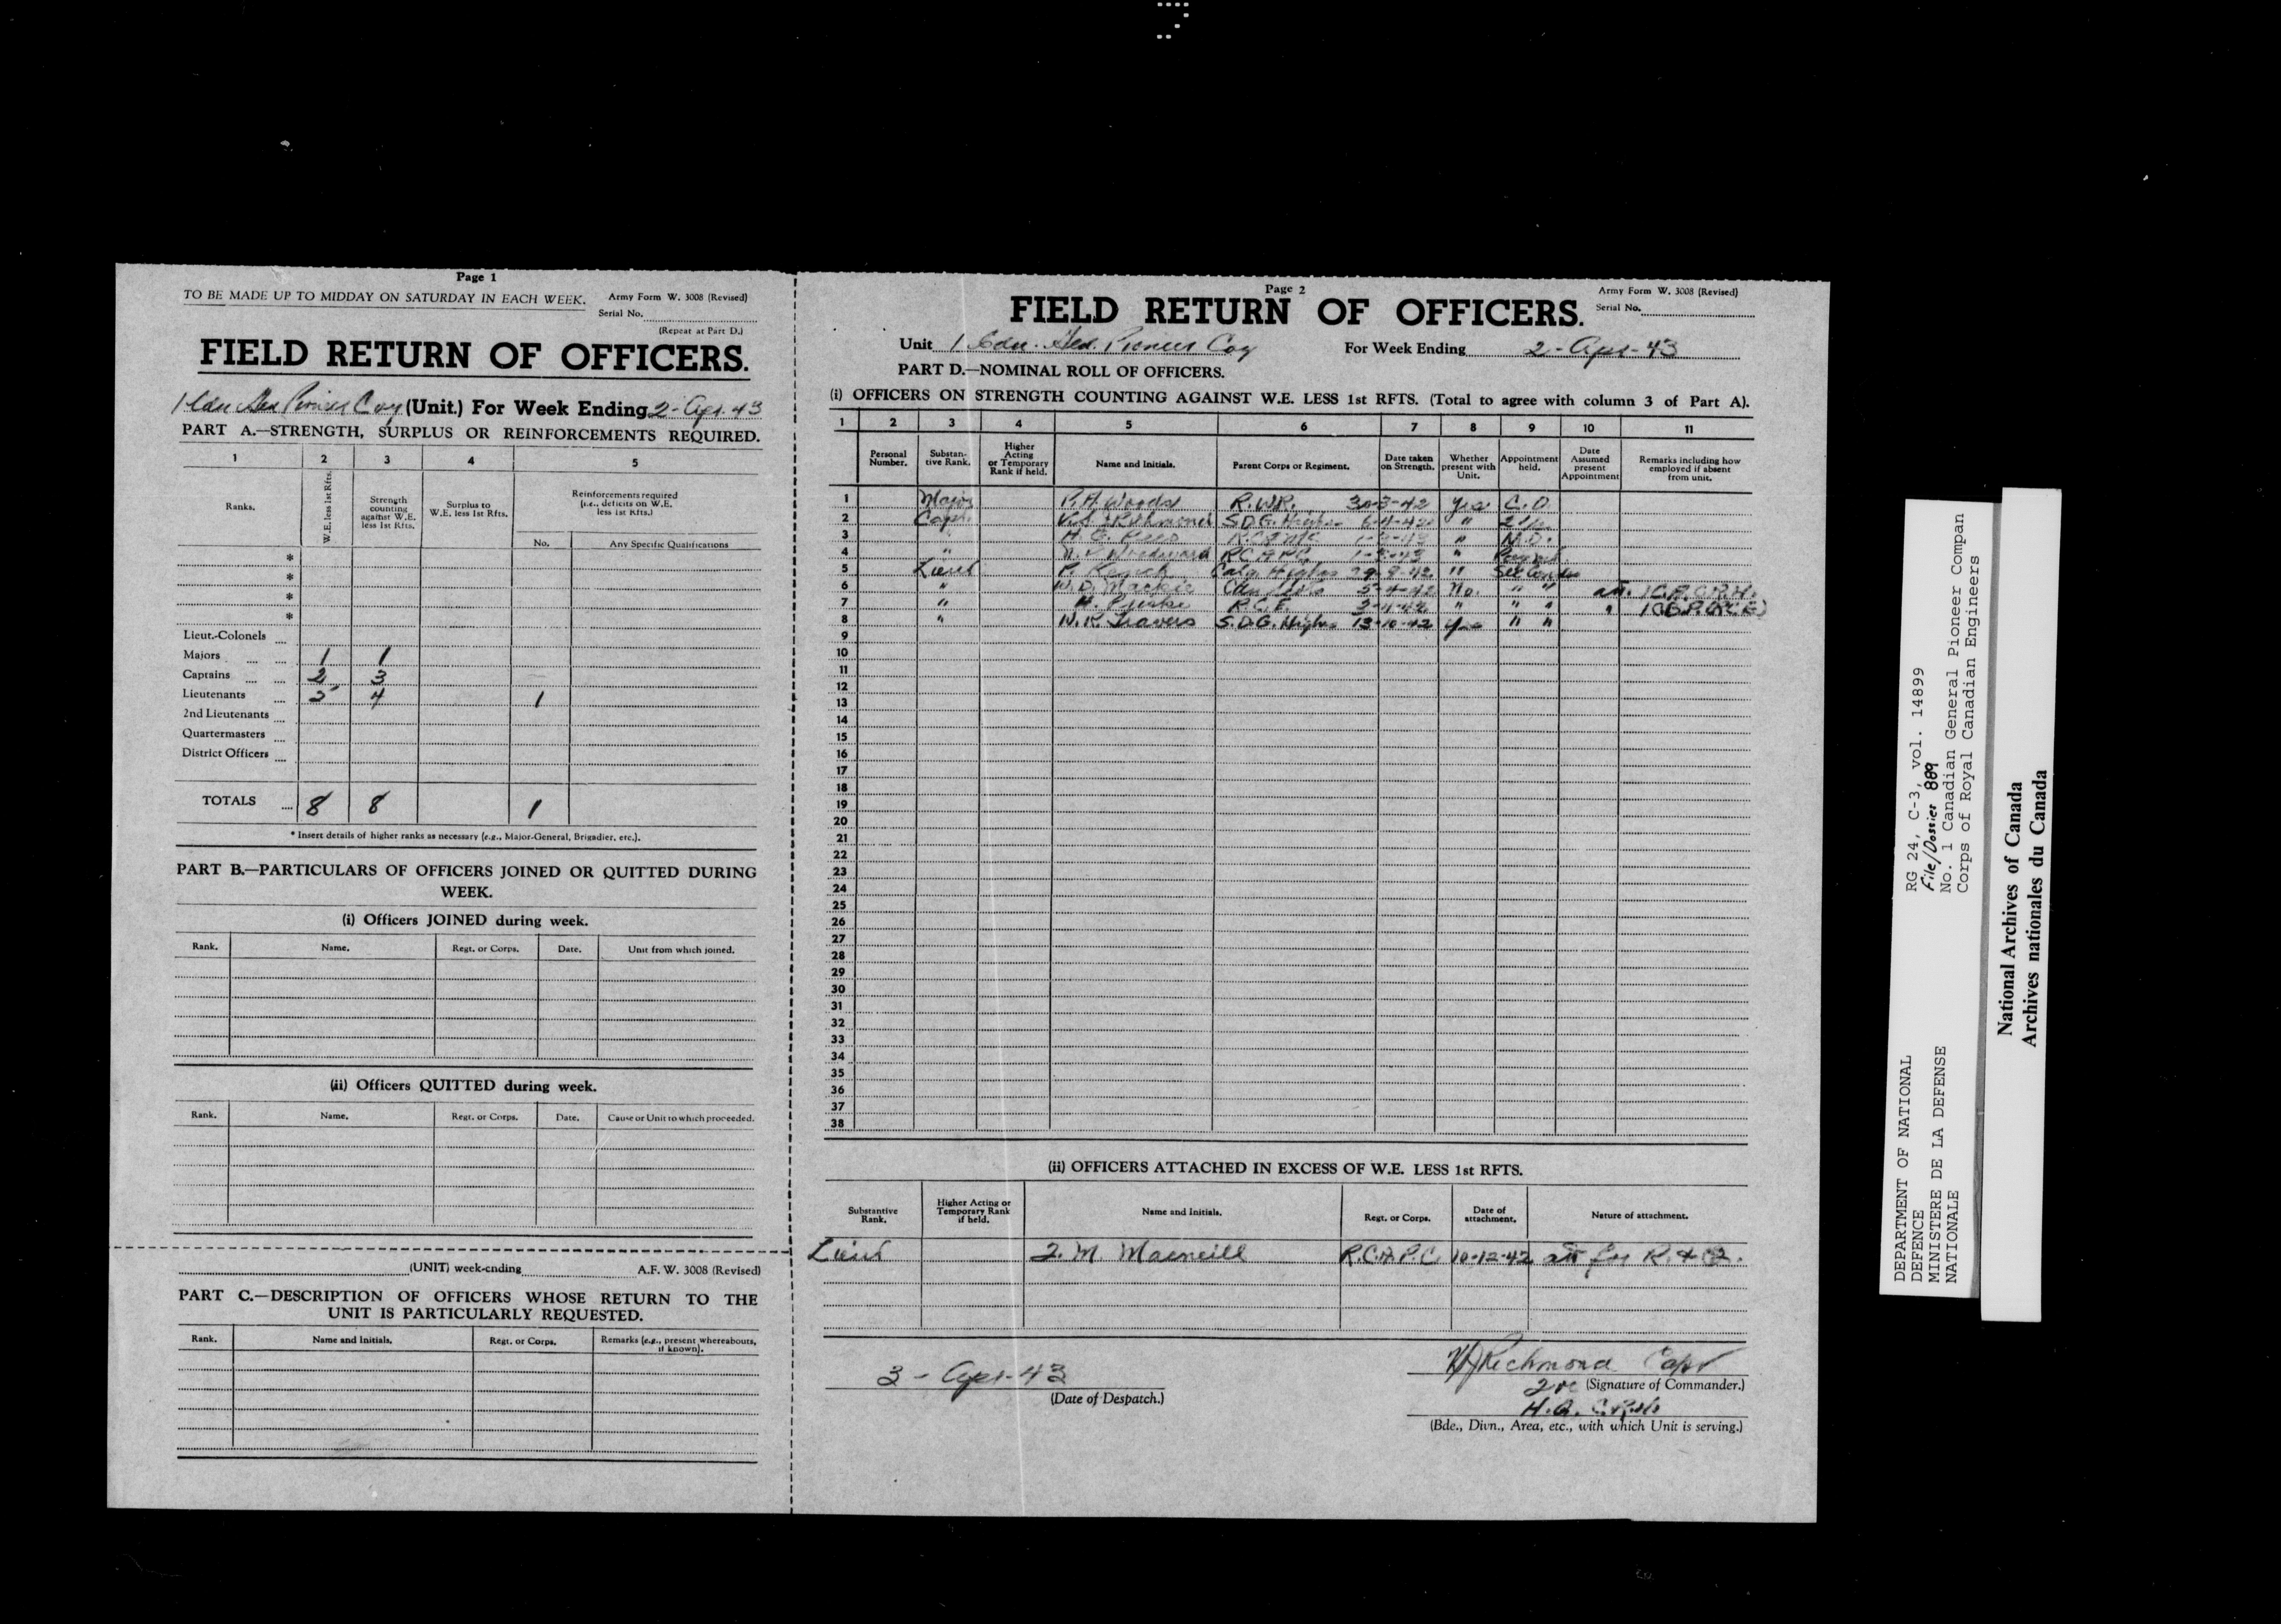 Page 1
TO BE MADE UP TO MIDDAY ON SATURDAY IN EACH WEEK. Army Form W. 3008 (Revised)
Serial No.
(Repeat at Part D.)
FIELD RETURN OF OFFICERS.
1 Cdn Gen Pioneer Coy (Unit.) For Week Ending 2-Apr-43
PART A.—STRENGTH, SURPLUS OR REINFORCEMENTS REQUIRED.
1 2 3 4 5
Ranks. W.E. less 1st Rfts. Strength counting against W.E. less 1st Rfts. Surplus to W.E. less 1st Rfts. Reinforcements required (i.e., deficits on W.E. less 1st Rfts.)
No. Any Specific Qualifications
*
*
*
*
Lieut.-Colonels
Majors 1 1
Captains 2 3
Lieutenants 5 4 1
2nd Lieutenants
Quartermasters
District Officers
TOTALS 8 8 1
* Insert details of higher ranks as necessary (e.g., Major-General, Brigadier, etc.).
PART B.—PARTICULARS OF OFFICERS JOINED OR QUITTED DURING
WEEK.
(i) Officers JOINED during week.
Rank. Name. Regt. or Corps. Date. Unit from which joined.
(ii) Officers QUITTED during week.
Rank. Name. Regt. or Corps. Date. Cause or Unit to which proceeded.
(UNIT) week-ending A.F. W. 3008 (Revised)
PART C.—DESCRIPTION OF OFFICERS WHOSE RETURN TO THE
UNIT IS PARTICULARLY REQUESTED.
Rank. Name and Initials. Regt. or Corps. Remarks (e.g., present whereabouts, if known).
Page 2
Army Form W. 3008 (Revised)
FIELD RETURN OF OFFICERS. Serial No.
Unit 1 Cdn. Gen. Pioneer Coy For Week Ending 2-Apr-43
PART D.—NOMINAL ROLL OF OFFICERS.
(i) OFFICERS ON STRENGTH COUNTING AGAINST W.E. LESS 1st RFTS. (Total to agree with column 3 of Part A).
1 2 3 4 5 6 7 8 9 10 11
Personal Number. Substantive Rank. Higher Acting or Temporary Rank if held. Name and Initials. Parent Corps or Regiment. Date taken on Strength. Whether present with Unit. Appointment held. Date Assumed present Appointment Remarks including how employed if absent from unit.
1 Major P.A. Woods R.W.R. 30-3-42 Yes C.O.
2 Capt. S.D.G. Highrs 6-4-42 "
3 " "
4 " Woodward R.C.A.P.C. "
5 Lieut Calg Highrs "
6 " W.D. Mackie No. " "
7 " R.C.E. " " "
8 " W.R. Travers S.D.G. Highrs 13-10-42 Yes " "
9
10
11
12
13
14
15
16
17
18
19
20
21
22
23
24
25
26
27
28
29
30
31
32
33
34
35
36
37
38
(ii) OFFICERS ATTACHED IN EXCESS OF W.E. LESS 1st RFTS.
Substantive Rank. Higher Acting or Temporary Rank if held. Name and Initials. Regt. or Corps. Date of attachment. Nature of attachment.
Lieut J. M. Macneill R.C.A.P.C. 10-12-42 att for R. & Q.
3-Apr-43
(Date of Despatch.)
Richmond Capt
(Signature of Commander.)
(Bde., Divn., Area, etc., with which Unit is serving.)
RG 24, C-3, vol. 14899
File/Dossier 889
No. 1 Canadian General Pioneer Compan
Corps of Royal Canadian Engineers
DEPARTMENT OF NATIONAL
DEFENCE
MINISTERE DE LA DEFENSE
NATIONALE
National Archives of Canada
Archives nationales du Canada